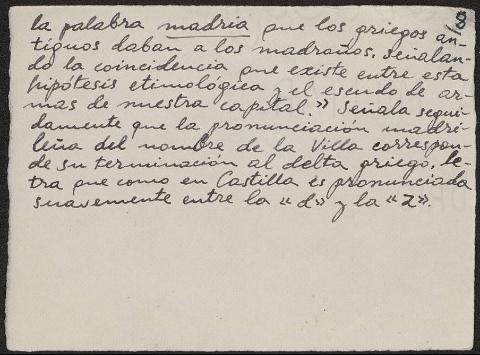 8
la palabra madria que los griegos an-
tiguos daban a los madraños, señalan-
do la coincidencia que existe entre esta
hipótesis etimológica y el escudo de ar-
mas de nuestra capital." Señala segui-
damente que la pronunciación madri-
leña del nombre de la Villa correspon-
de su terminación al delta griego, le-
tra que como en Castilla es pronunciada
suavemente entre la "d" y la "z".